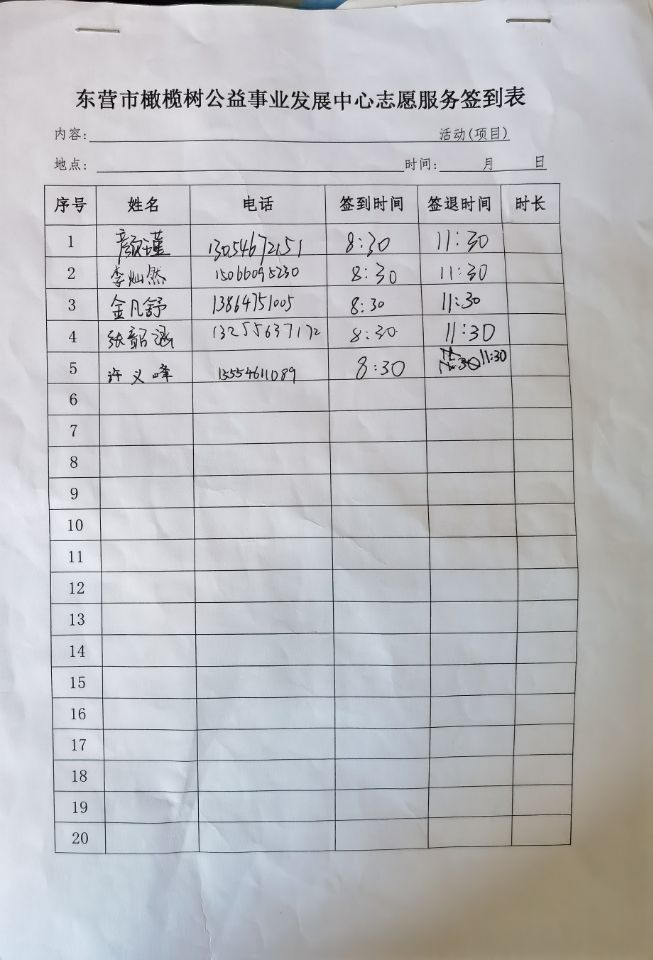 东营市橄榄树公益事业发展中心志愿服务签到表
内容: 活动(项目)
地点: 时间: 月 日
序号 姓名 电话 签到时间 签退时间 时长
1 颜瑾 13054672151 8:30 11:30
2 李灿然 15066095230 8:30 11:30
3 金凡舒 13864751005 8:30 11:30
4 张韶涵 13255637172 8:30 11:30
5 许义峰 15554611089 8:30 11:30
6
7
8
9
10
11
12
13
14
15
16
17
18
19
20